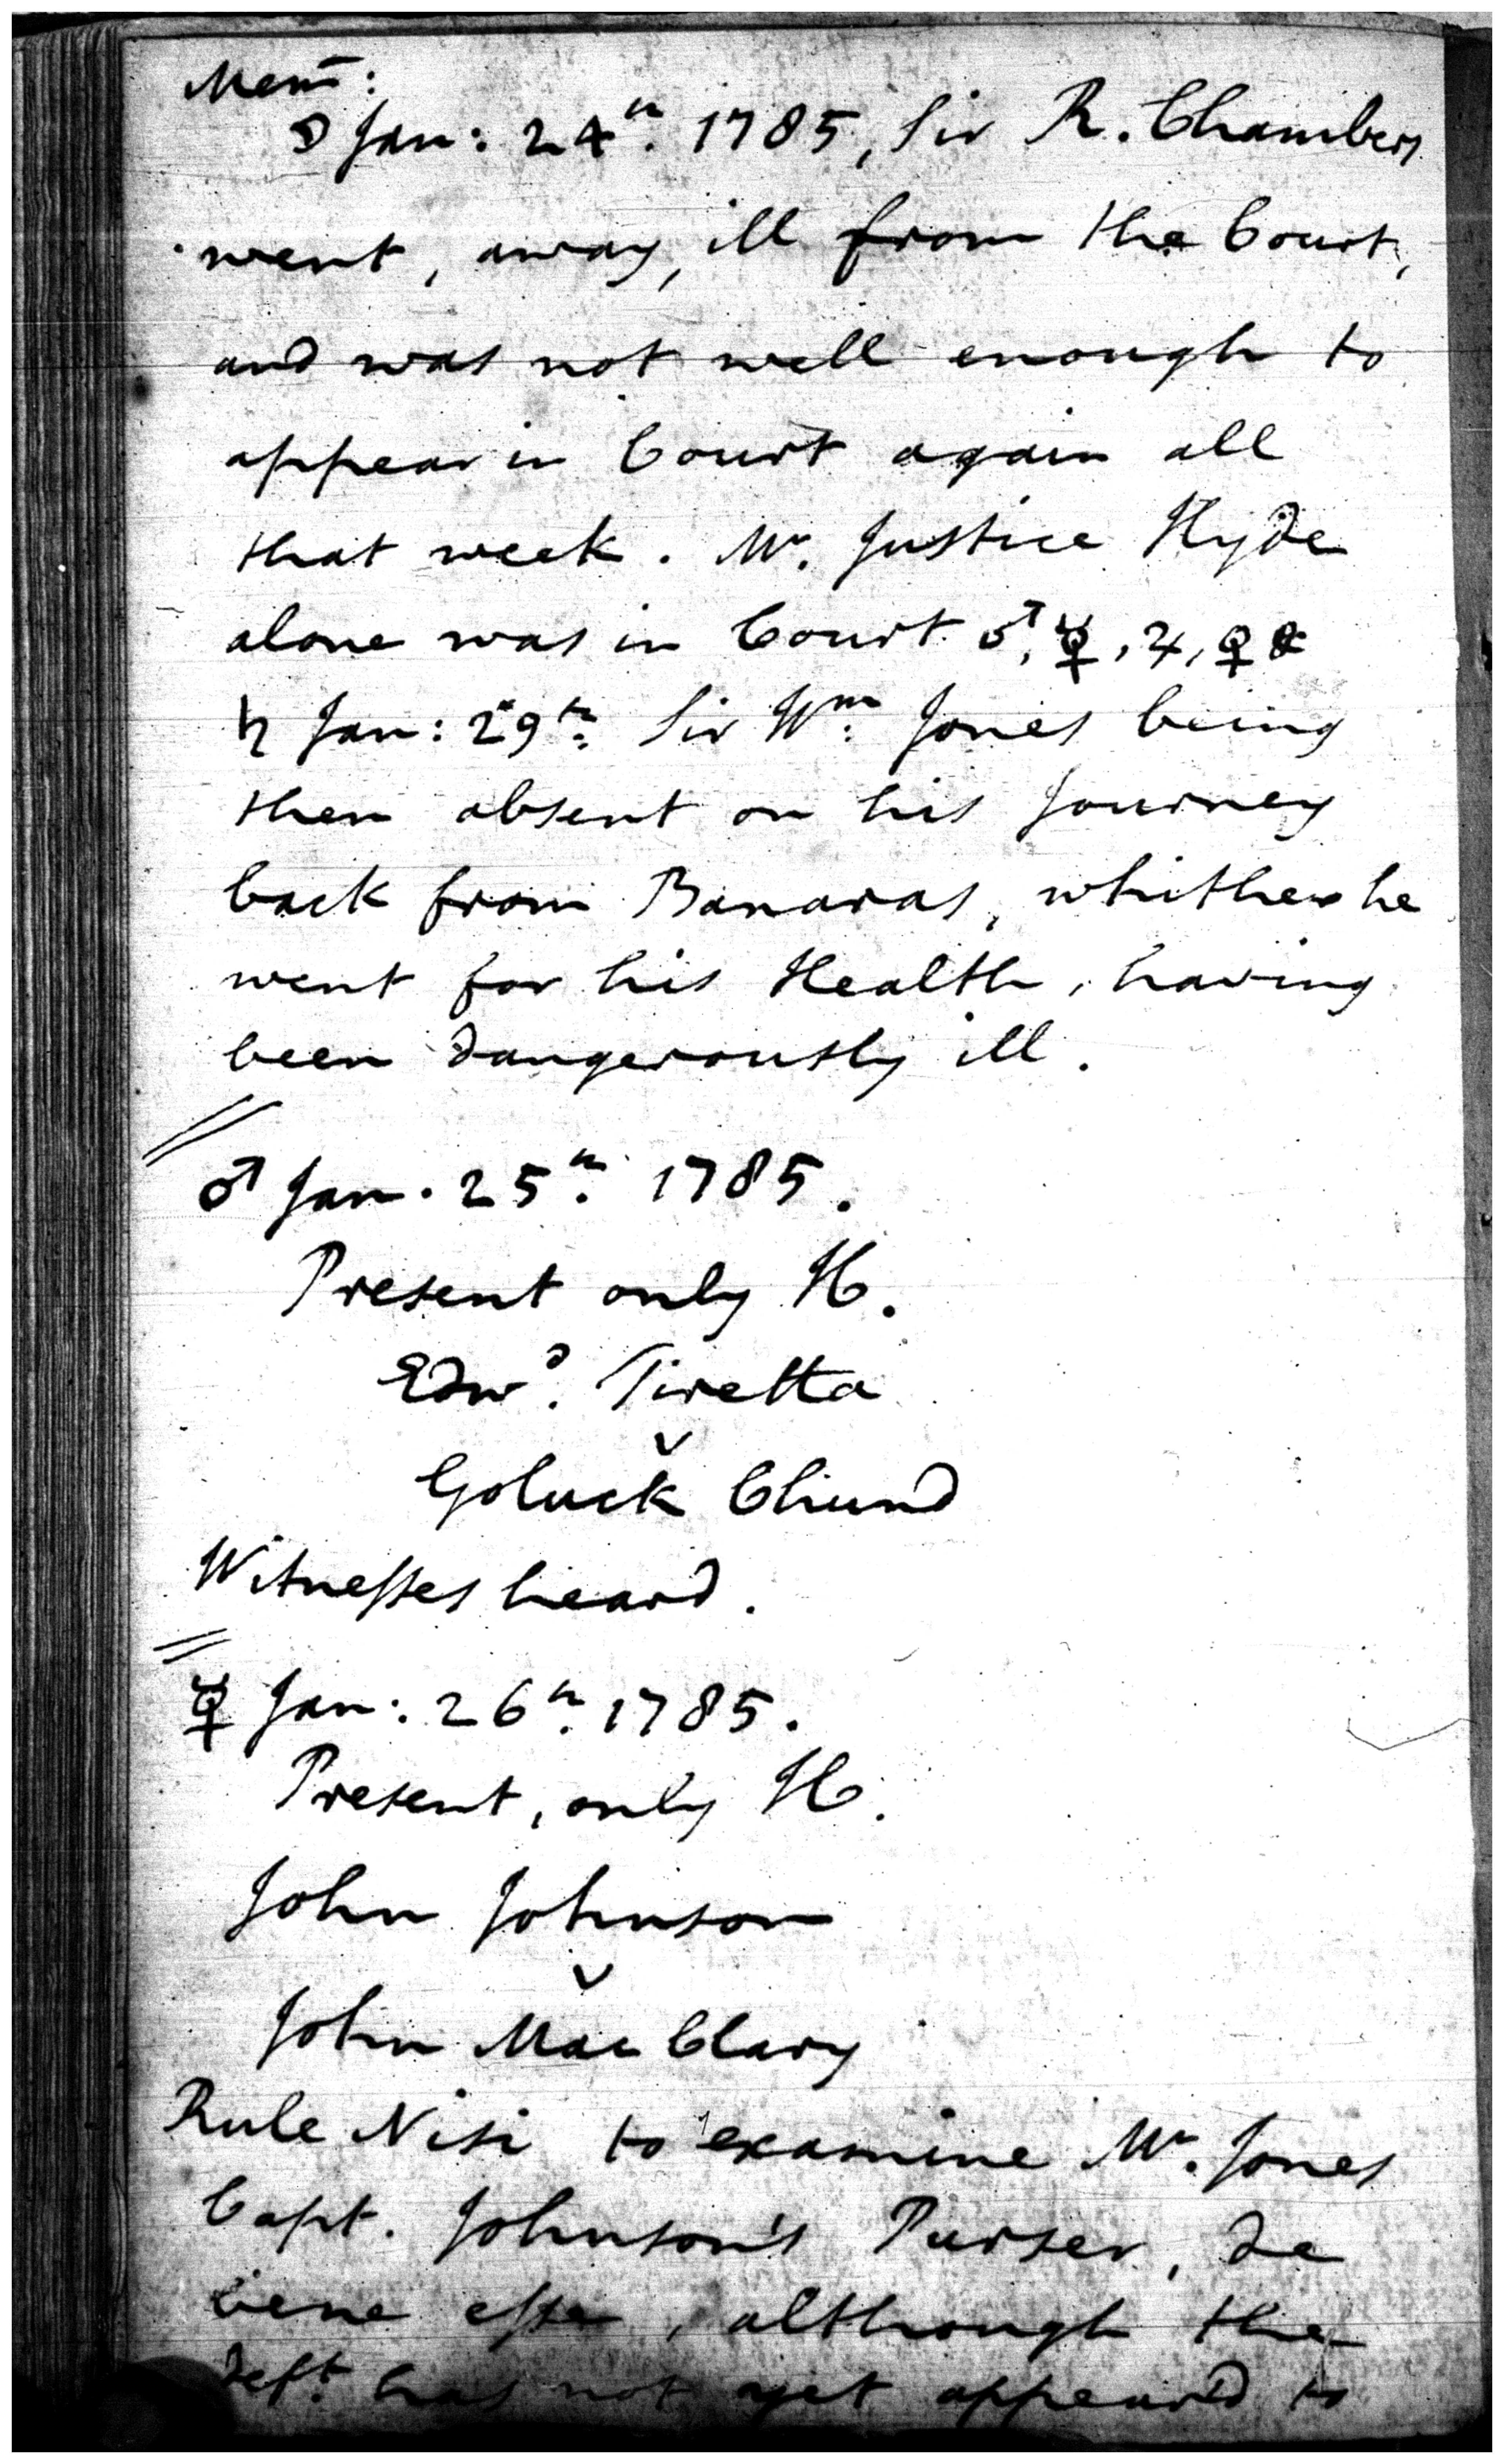 Mem:
☽ Jan: 24th. 1785, Sir R. Chambers
went, away, ill from the Court,
and was not well enough to
appear in Court again all
that week. Mr. Justice Hyde
alone was in Court ♂, ☿, ♃, ♀ &
♄ Jan: 29th. Sir Wm: Jones being
then absent on his Journey
back from Banaras, whither he
went for his Health, having
been dangerously ill.
♂ Jan. 25th. 1785.
Present only H.
Edwd. Tiretta
v
Goluck Chund
Witnesses heard.
☿ Jan: 26th. 1785.
Present, only H.
John Johnson
v
John Mac Clary
Rule Nisi to examine Mr. Jones
Capt. Johnson's Purser, de
bene esse, although the
Deft. has not yet appear'd to